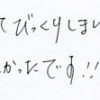 てびっくりしまし
かったです!!